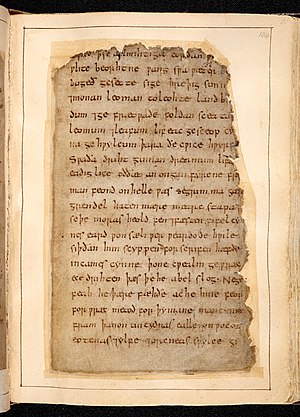 ƿlite beorhtne ƿang sƿa ƿæter
bugeð gesette sige hreþig sunn
monan leoman toleohte land b
dum ⁊ge frætƿade foldan sceat
leomum ⁊leafum lif eac gesceop cyn
na ge hƿylcum þara ðe cƿice hƿyrf
sƿa ða driht guman dreamum lif
eadig lice oððæt an ongan fyrene fre
man feond onhelle ƿæs segrimma gæ
grendel haten mære mearc stapa
seþe moras heold fen ⁊fæsten fifel cyn
nes eard ƿonsæli ƿer ƿeardode hƿile
siþðan him scyppen forscrifen hæfde
incaines cynne þone cƿealm geƿræc
ece drihten þæs þehe abel slog. Ne ge
feah he þære fæhðe ac he hine feor
forƿræc metod for þymane mancynne
fram þanon untydras ealle onƿocon
eotenas ⁊ylfe ⁊orcneas sƿylce gi